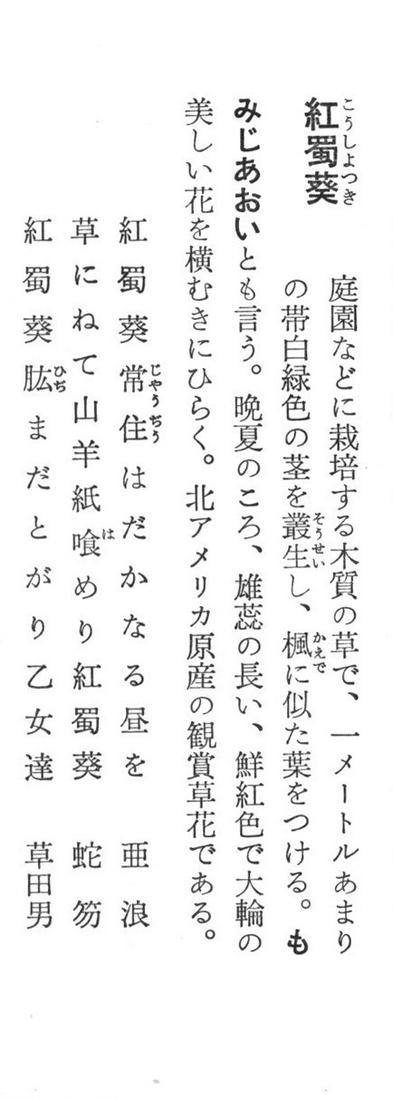 紅蜀葵 庭園などに栽培する木質の草で、一メートルあまり
こうしよつき
の帯白緑色の茎を叢生し、楓に似た葉をつける。も
そうせい かえで
みじあおいとも言う。晩夏のころ、雄蕊の長い、鮮紅色で大輪の
美しい花を横むきにひらく。北アメリカ原産の観賞草花である。
紅蜀葵常住はだかなる昼を 亜浪
じやうぢう
草にねて山羊紙喰めり紅蜀葵 蛇笏
は
紅蜀葵肱まだとがり乙女達 草田男
ひぢ